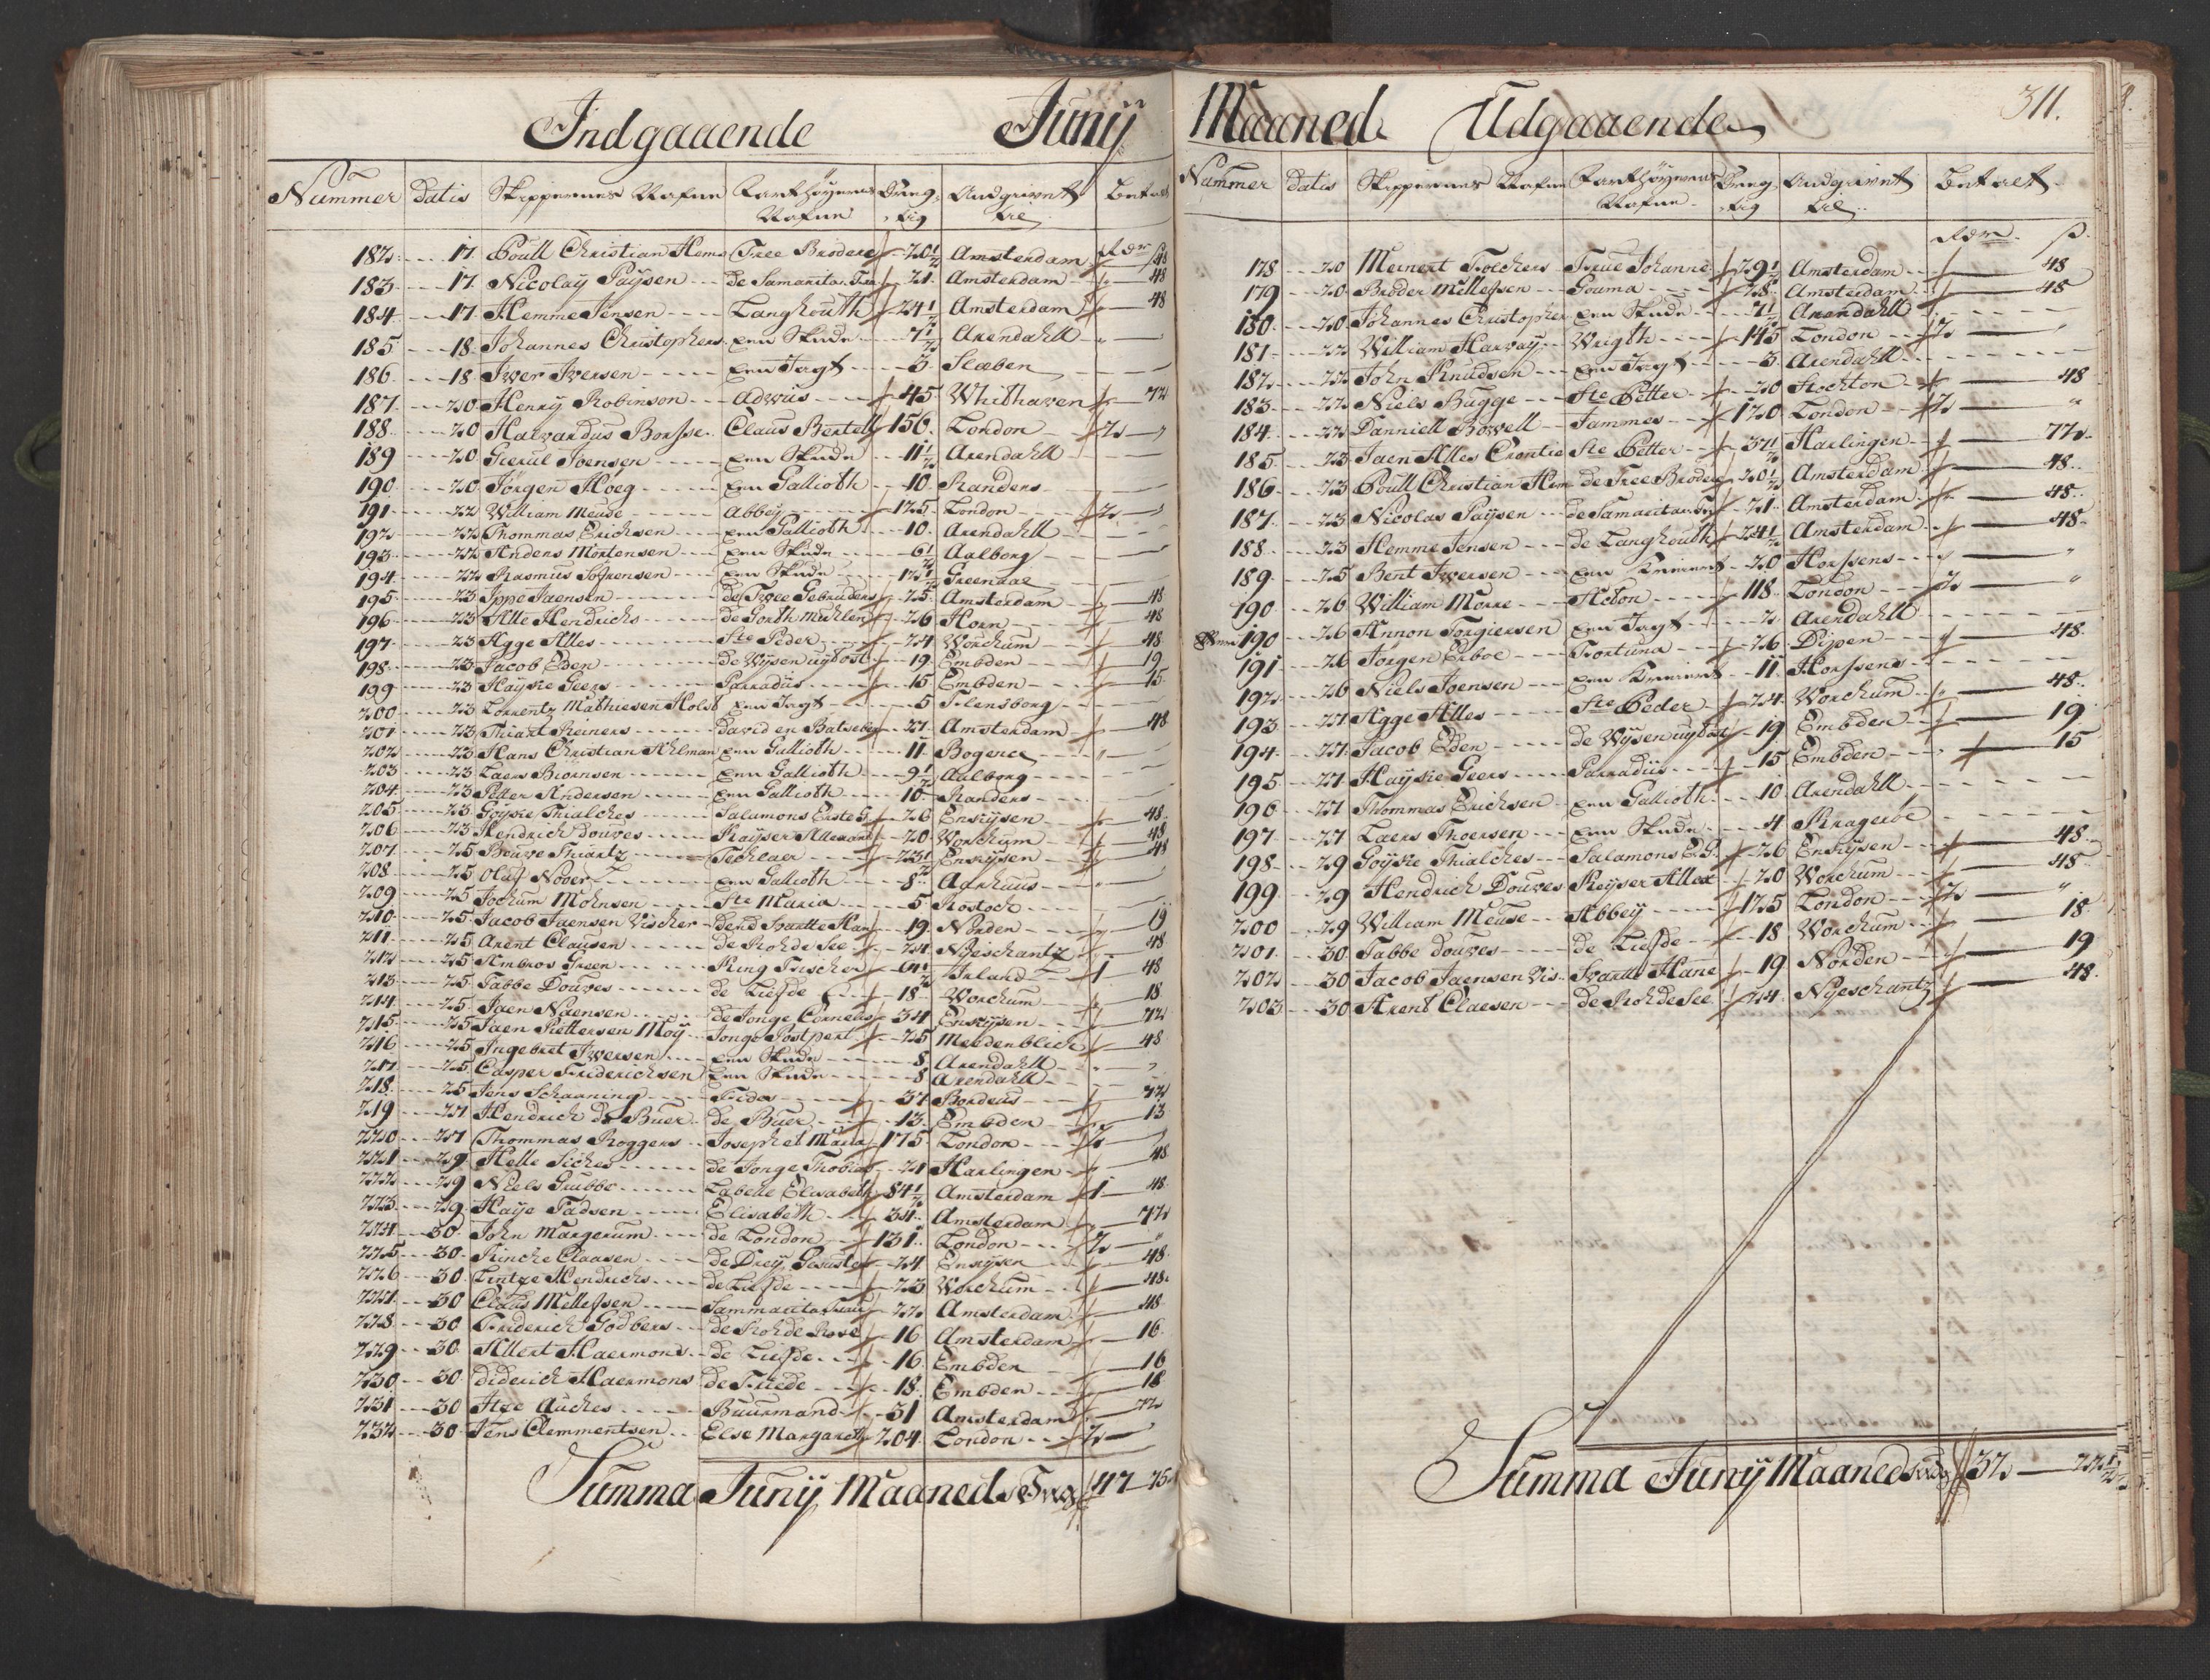 Indgaaende Junij
Nummer datis Skippernes Nafne Farthøyernes Nafne Dræg-tig Andgivet til Betalt
Rdr ß
182 17 Poull Christian Hem Tree Brødere 20½ Amsterdam 48
183 17 Nicolaij Paijsen de Samarita 21 Amsterdam 48
184 17 Hemme Jensen Langhouth 24½ Amsterdam 48
185 18 Johannes Christophers een Skude 7½ Arendahll
186 18 Iver Iversen een Jagt 3 Sleben
187 20 Henry Robinson Adwiis 45 Whithaven 72
188 20 Halvardus Borsse Claus Bertell 156 London 2
189 20 Joensen een Skude 11½ Arendahll
190 20 Jørgen Hoeg een Gallioth 10 Randers
191 22 William Meuse Abbeij 125 London 2
192 22 Thommas Erichsen een Gallioth 10 Arendahll
193 22 Anders Mortensen een Skude 6½ Aalborg
194 22 Rasmus Sørensen een Skude 12½ Greenaae
195 23 Ippe Jaensen de Twee Gebruders 25 Amsterdam 48
196 23 Alle Hendrichs de Gorth Muhlen 26 Horn 48
197 23 Agge Alles Ste Peder 24 Worchum 48
198 23 Jacob Eden de Wijsen uijtost 19 Embden 19
199 23 Haijke Geers Parradiis 15 Embden 15
200 23 Lorrentz Mathiesen Holst een Jagt 5 Flensborg
201 23 Thiart Reiners David en Batseba 27 Amsterdam 48
202 23 Hans Christian Ahlman een Gallioth 11 Bogence
203 23 Laers Biornsen een Gallioth 9½ Aalborg
204 23 Petter Andersen een Gallioth 10 Randers
205 23 Goijkke Thialches Salamons Erste G 26 Enkijsen 48
206 23 Hendrich Douwes Kaijser Allexand 20 Worchum 48
207 25 Bouwe Thiartz 23½ Enkijsen 48
208 25 Oluf Nooer een Gallioth 8 Aarhuus
209 25 Jochum Mohnsen Ste Maria 5 Rostock
210 25 Jacob Jaensen Vischer dend Svartte Han 19 Norden 19
211 25 Arent Clausen de Rohde See 24 Nijeschantz 48
212 25 Ambros Green King Fischer 61½ Irland 1 48
213 25 Tabbe Douwes de Liefde 18 Worchum 18
214 25 Jaen Naensen de Jonge Cornelis 34 Enkijsen 72
215 25 Jaen Pettersen Moij Jonge Postpert 25 Meedenblick 48
216 25 Ingebret Iversen een Skude 8 Arendahll
217 25 Casper Friderichsen een Skude 8 Arendahll
218 25 Jens Schaaning Fides 37 Bordeus 72
219 27 Hendrich de Buer de Buer 13 Embden 13
220 27 Thommas Roggers Joseph et Maria 175 London 2
221 29 Helle Siches de Jonge Thobias 21 Harlingen 48
222 29 Niels Grubbe Labelle Elisabeth 84½ Amsterdam 1 48
223 29 Haije Tadsen Elisabeth 34 Amsterdam 72
224 30 John Margerum de London 131 London 2
225 30 Rinche Claasen de Dreij Gesuster 24 Enkijsen 48
226 30 Lintze Hendrichs de Liefde 23 Worchum 48
227 30 Claus Mellefsen Sammarita 22 Amsterdam 48
228 30 Friderich Godbers de Rohde Rose 16 Amsterdam 16
229 30 Allert Haermons de Liefde 16 Embden 16
230 30 Diderich Haermons de Freede 18 Embden 18
231 30 Itze Auches Buurmand 31 Amsterdam 72
232 30 Jens Clemmentsen Else Margareth 204 London 2
Summa Junij Maaned 47 25
Maaned Udgaaende 311.
Nummer datis Skippernes Nafne Farthøyernes Nafne Dræg-tig Andgivet til Betalt
Rdr ß
178 20 Meinert Folchers Frue Johanne 29½ Amsterdam 48
179 20 Broder Mellefsen Gouma 28 Amsterdam 48
180 20 Johannes Christopher een Skude 7½ Arendahll
181 22 William Harway Wrigth 145 London 2
182 22 John Knudsen een Jagt 3 Arendahll
183 22 Niels Bugge Ste Petter 20 Stockton 48
184 22 Danniell Bowell Jammes 120 London 2
185 23 Jaen Alles Crontie Ste Petter 37½ Harlingen 72
186 23 Poull Christian Hem de Tree Brødere 20½ Amsterdam 48
187 23 Nicolas Paijsen de Samarita 21 Amsterdam 48
188 23 Hemme Jensen de Langhouth 24½ Amsterdam 48
189 25 Bent Iversen een 20 Horssens
190 26 William Morre Acton 118 London 2
190 26 Annon Torgiersen een Jagt 2 Arendahll
191 26 Jørgen Erboe Fortuna 26 Dijpen 48
192 26 Niels Joensen een 11 Horssens
193 27 Agge Alles Ste Peder 24 Worchum 48
194 27 Jacob Eden de Wijsen uijtost 19 Embden 19
195 27 Haijke Geers Parradiis 15 Embden 15
196 27 Thommas Erichsen een Gallioth 10 Arendahll
197 27 Laers Thoersen een Skude 4 Kragerøe
198 29 Goijkke Thialches Salamons E. G. 26 Enkijsen 48
199 29 Hendrich Douwes Keijser Allex 20 Worchum 48
200 29 William Meuse Abbeij 125 London 2
201 30 Tabbe Douwes de Liefde 18 Worchum 18
202 30 Jacob Jaensen Vis Svartte Hane 19 Norden 19
203 30 Arent Claesen de Rohde See 24 Nijeschantz 48
Summa Junij Maaned 32 22½